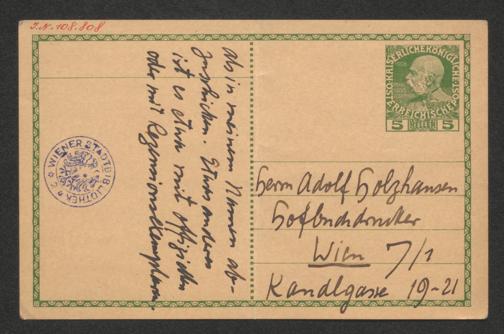 J.N. 108.808
als in meinem Namen ab-
zuschicken. Etwas anderes
ist es etwa mit offiziellen
oder mit Rezensionsexemplaren.
WIENER STADTBIBLIOTHEK
KAISERLICHE KÖNIGLICHE
ÖSTERREICHISCHE POST
5 HELLER 5
Herrn Adolf Holzhausen
Hofbuchdrucker
Wien 7/1
Kandlgasse 19-21